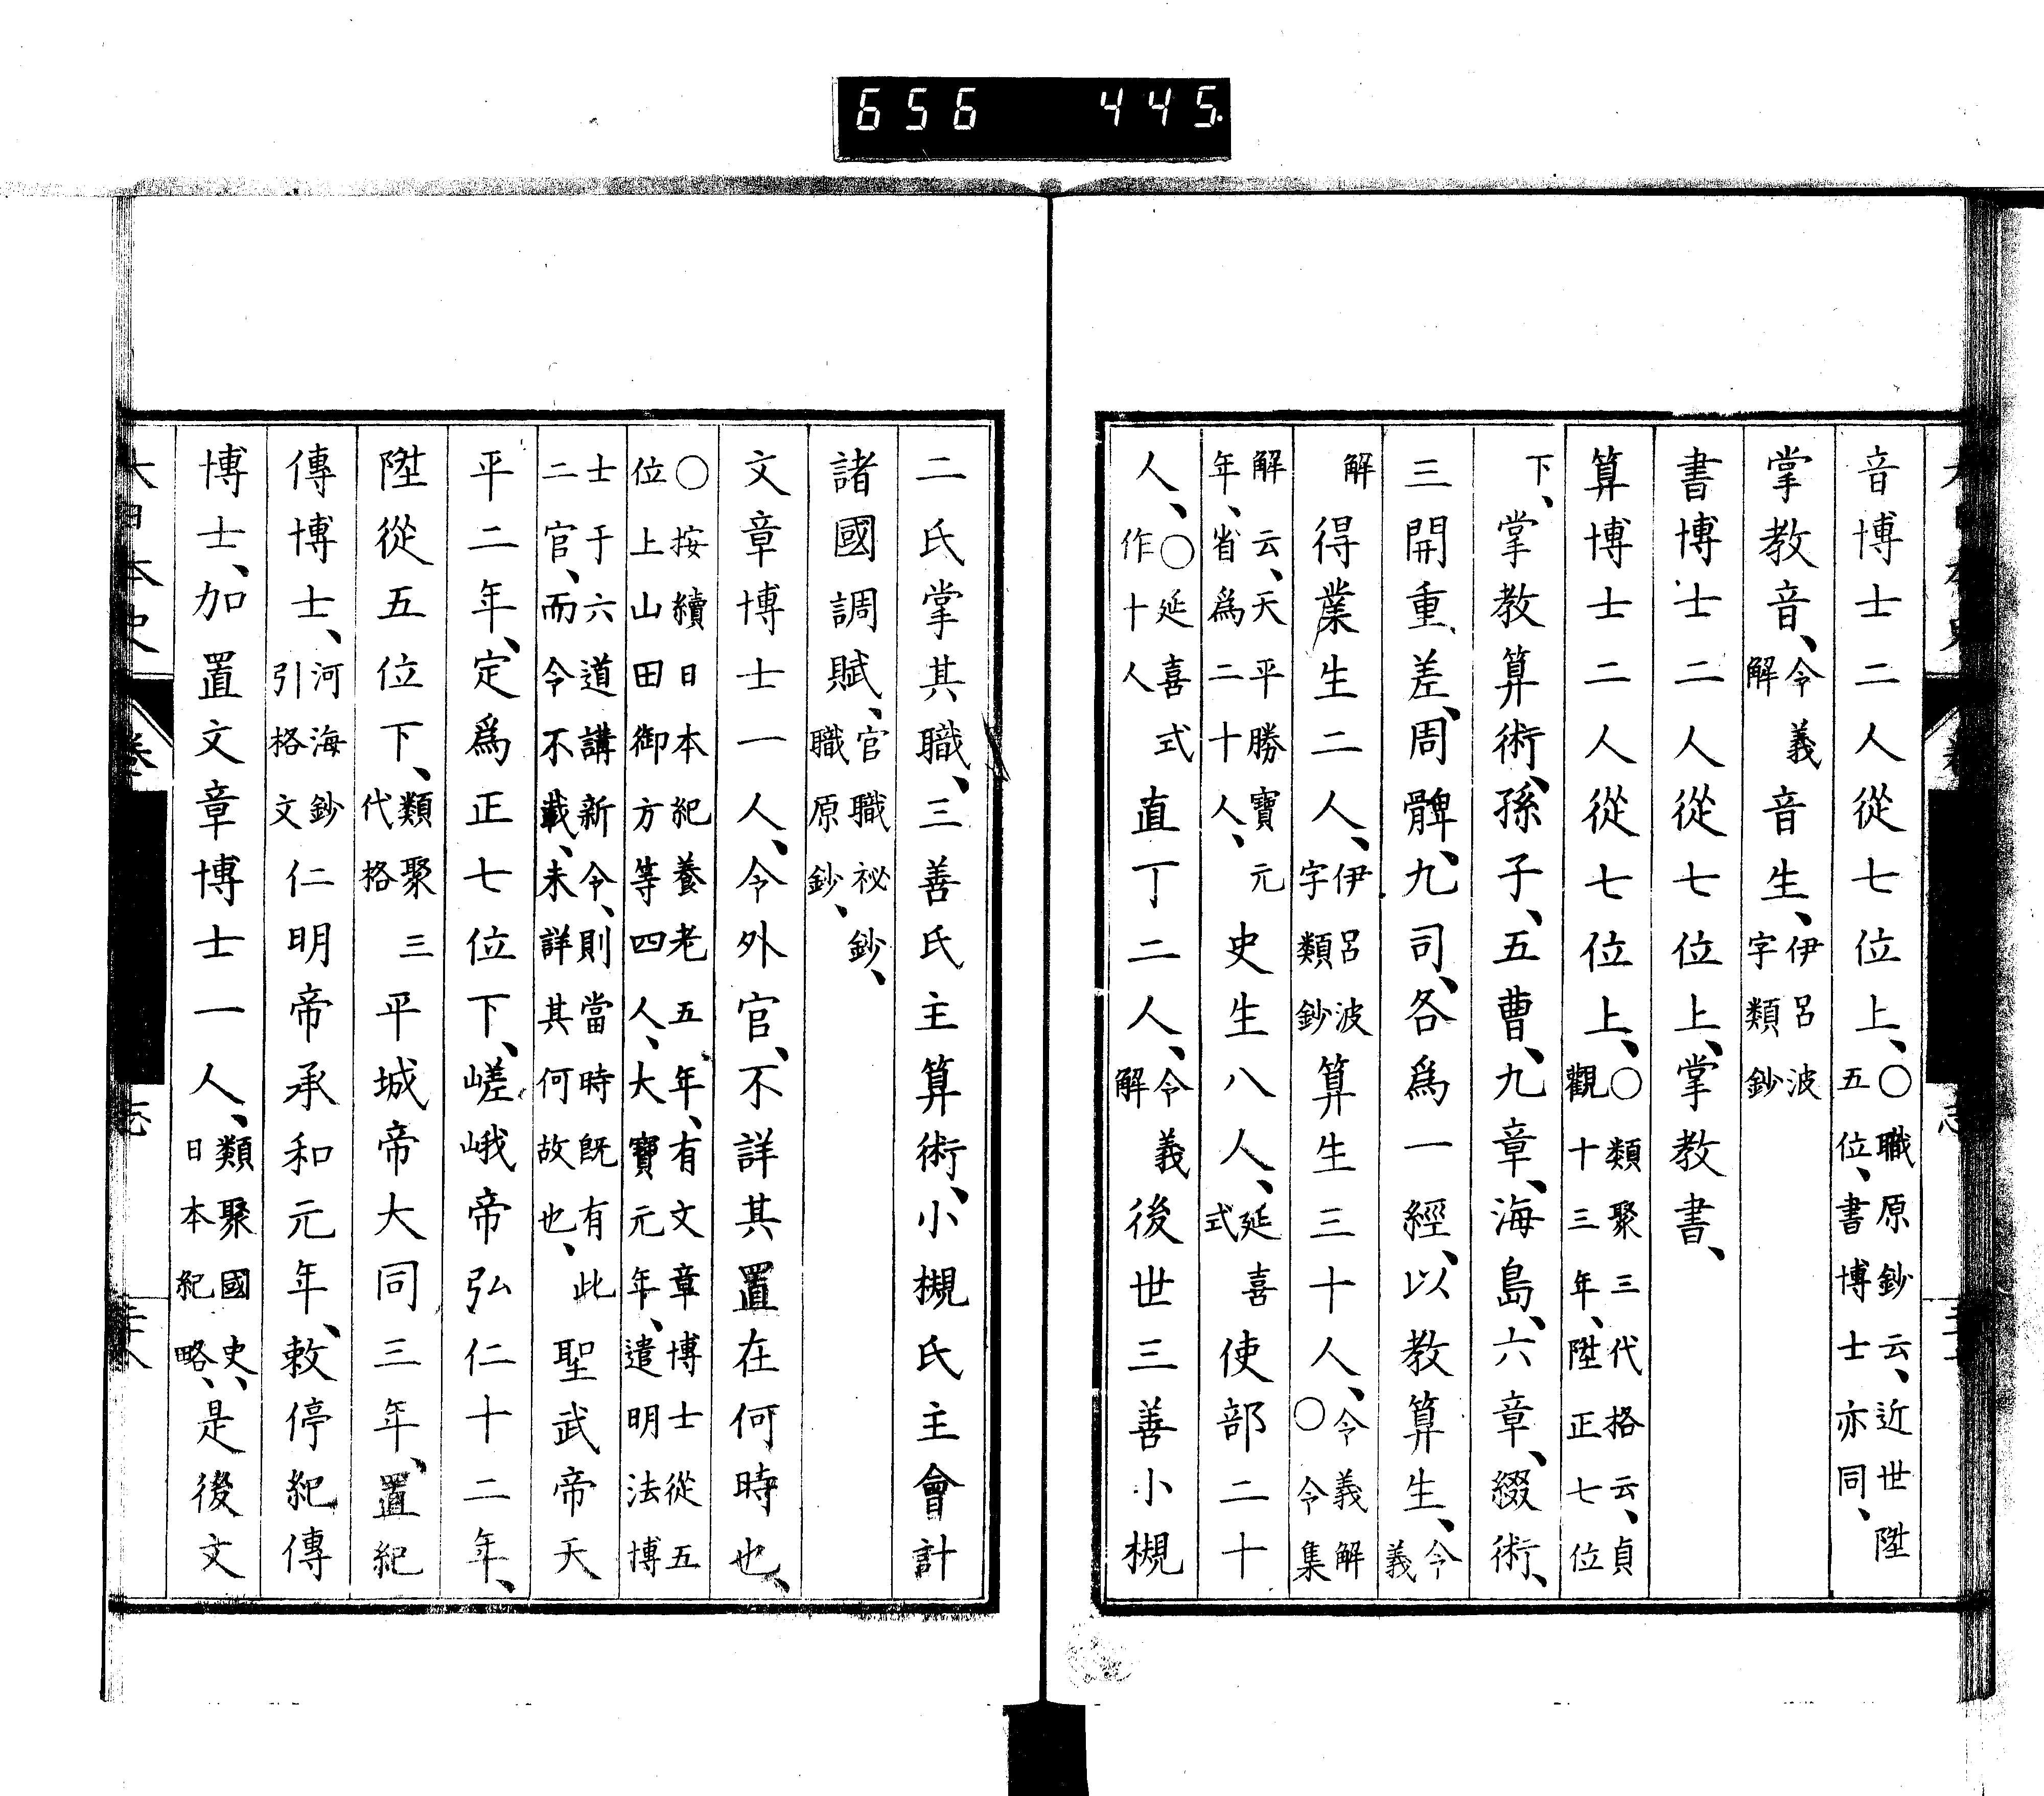 656 445.
音博士二人從七位上、○職原鈔云、近世陞五位、書博士亦同、
掌教音、令義解音生、伊呂波字類鈔
書博士二人從七位上、掌教書、
算博士二人從七位上、○類聚三代格云、貞觀十三年、陞正七位
下、掌教算術、孫子、五曹、九章、海島、六章、綴術、
三開重差、周髀、九司、各爲一經、以教算生、令義
解得業生二人、伊呂波字類鈔算生三十人、令義解○令集
解云、天平勝寶元年、省爲二十人、史生八人、延喜式使部二十
人、○延喜式作十人直丁二人、令義解後世三善小槻
二氏掌其職、三善氏主算術、小槻氏主會計
諸國調賦、官職祕鈔、職原鈔、
文章博士一人、令外官、不詳其置在何時也、
○按續日本紀養老五年、有文章博士從五位上山田御方等四人、大寶元年、遣明法博
士于六道講新令、則當時既有此二官、而令不載、未詳其何故也、聖武帝天
平二年、定爲正七位下、嵯峨帝弘仁十二年、
陞從五位下、類聚三代格平城帝大同三年、置紀
傳博士、河海鈔引格文仁明帝承和元年、敕停紀傳
博士、加置文章博士一人、類聚國史、日本紀略、是後文
大日本史 卷 志